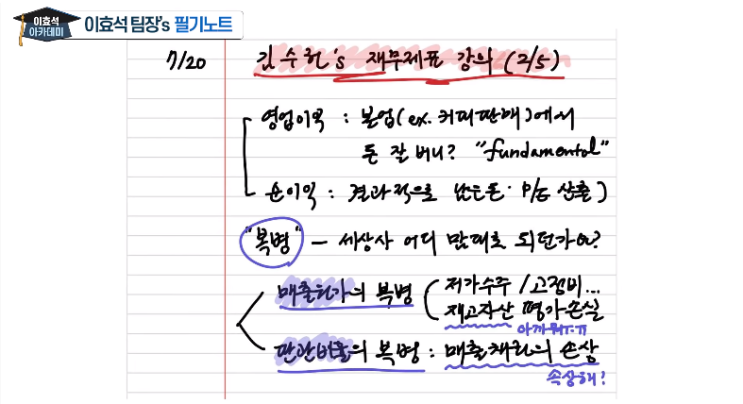 이효석
아카데미
이효석 팀장's 필기노트
7/20 김수헌's 재무제표 강의 (2/5)
영업이익 : 본업(ex. 커피판매)에서
돈 잘 버니? "fundamental"
순이익 : 결과적으로 남는돈. P/E 산출)
"복병" - 세상사 어디 맘대로 되던가요?
매출원가의 복병 ( 저가수주 / 고정비...
재고자산 평가손실
아까워ㅜㅠ
판관비율의 복병 : 매출채권의 손상
속상해!